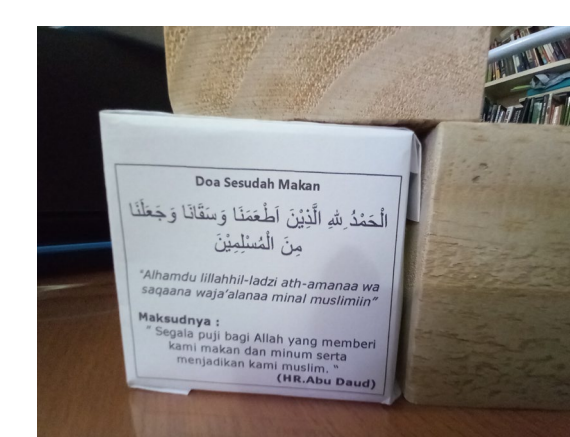 Doa Sesudah Makan
الْحَمْدُ لِلهِ الَّذِيْنَ اَطْعَمَنَا وَسَقَانَا وَجَعَلَنَا
مِنَ الْمُسْلِمِيْنَ
"Alhamdu lillahhil-ladzi ath-amanaa wa
saqaana waja'alanaa minal muslimiin"
Maksudnya :
" Segala puji bagi Allah yang memberi
kami makan dan minum serta
menjadikan kami muslim. "
(HR.Abu Daud)